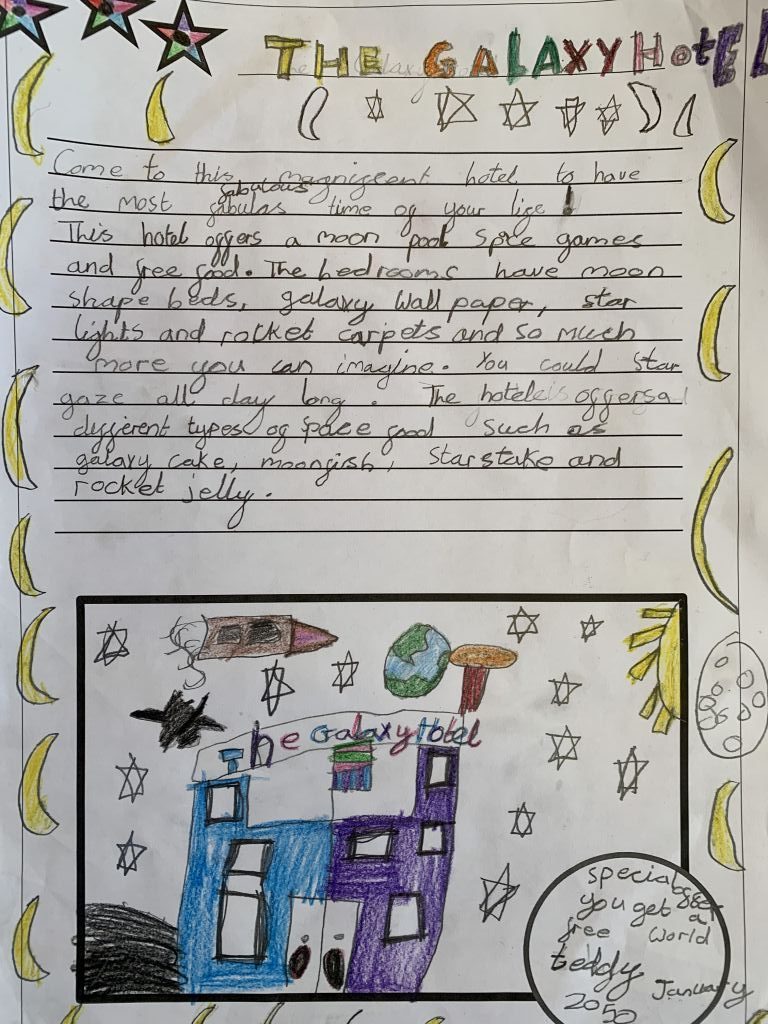 THE GALAXY HotEL
Come to this magnificent hotel to have
fabulous
the most fabulas time of your life !
This hotel offers a moon pool Spce games
and free food. The bedrooms have moon
shape beds, galaxy Wall paper, star
lights and rocket carpets and so much
more you can imagine. You could star
gaze all day long . The hotel offers
different types of space food Such as
galaxy cake, moonfish, Starstake and
rocket jelly.
The Galaxy Hotel
special offer
you get a
free World
teddy
January
2050